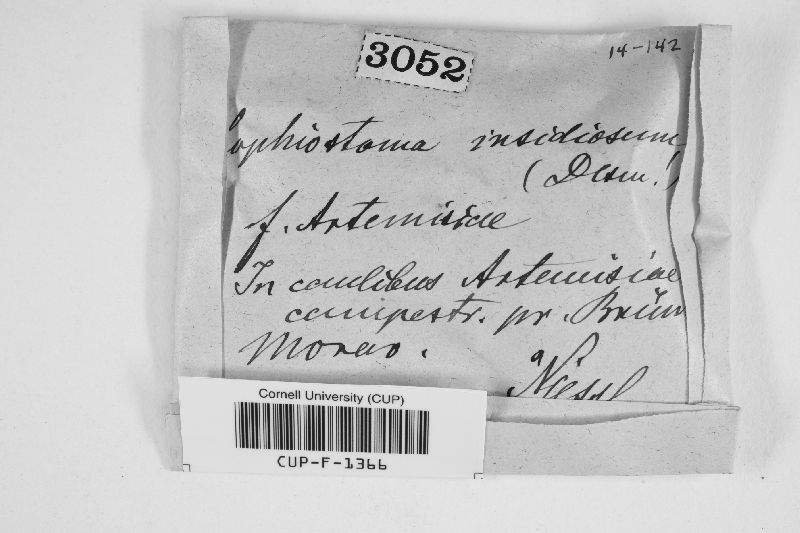 3052
14-142
Lophiostoma insidiosum
(Desm.)
f. Artemisiae
In caulibus Artemisiae
campestr. pr. Brünn
Morav.
Niessl
Cornell University (CUP)
CUP-F-1366